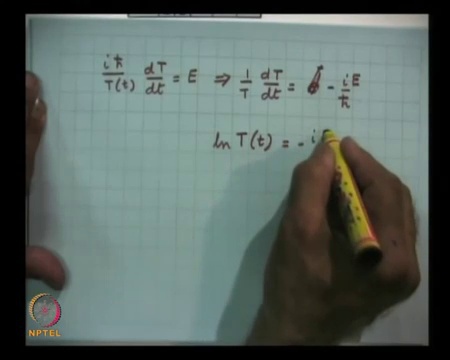 iħ/T(t) dT/dt = E ⇒ 1/T dT/dt = - iE/ħ
ln T(t) = - i
NPTEL